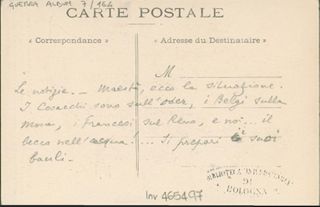 GUERRA ALBUM 7/166
CARTE POSTALE
« Correspondance »
« Adresse du Destinataire »
M
Le notizie. — Maestà, ecco la situazione.
I Cosacchi sono sull'oder, i Belgi sulla
mosa, i Francesi sul Reno, e noi... il
becco nell'acqua!... Si prepari i suoi
bauli.
BIBLIOTECA
DI
BOLOGNA
Inv 465497